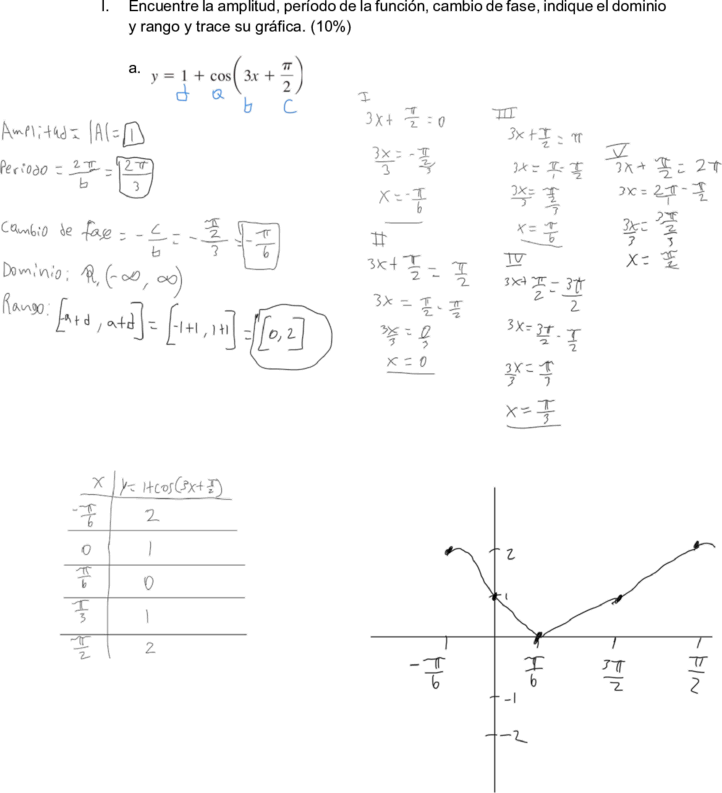 I. Encuentre la amplitud, período de la función, cambio de fase, indique el dominio
y rango y trace su gráfica. (10%)
a. y = 1 + cos(3x + π/2)
d a b c
Amplitud = |A| = 1
Periodo = 2π/b = 2π/3
Cambio de fase = -c/b = -(π/2)/3 = -π/6
Dominio: ℝ, (-∞, ∞)
Rango: [-a+d, a+d] = [-1+1, 1+1] = [0, 2]
I
3x + π/2 = 0
3x/3 = -(π/2)/3
x = -π/6
II
3x + π/2 = π/2
3x = π/2 - π/2
3x/3 = 0/3
x = 0
III
3x + π/2 = π
3x = π/1 - π/2
3x/3 = (π/2)/3
x = π/6
IV
3x + π/2 = 3π/2
3x = 3π/2 - π/2
3x/3 = π/3
x = π/3
V
3x + π/2 = 2π
3x = 2π/1 - π/2
3x/3 = (3π/2)/3
x = π/2
x y = 1+cos(3x+π/2)
-π/6 2
0 1
π/6 0
π/3 1
-π/2 2
2
1
-π/6 π/6 3π/2 π/2
-1
-2